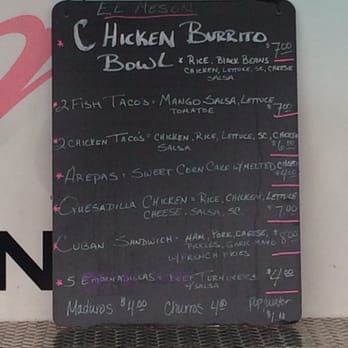 EL MESON
* CHICKEN BURRITO $7.00
BOWL * RICE, BLACK BEANS
CHICKEN, LETTUCE, SC, CHEESE
SALSA
* 2 FISH TACOS = MANGO SALSA, LETTUCE $7.00
TOMATOE
* 2 CHICKEN TACO'S = CHICKEN, RICE, LETTUCE, SC, CHEESE
SALSA $6.00
* AREPAS = SWEET CORN CAKE W/ MELTED CHEESE
$4.00
* QUESADILLA CHICKEN = RICE, CHICKEN, LETTUCE
CHEESE, SALSA, SC. $7.00
* CUBAN SANDWICH - HAM, PORK, CHEESE, $8.00
PICKLES, GARLIC MAYO
W/ FRENCH FRIES
* 5 EMPANADILLAS = BEEF TURNOVERS $4.00
W/ SALSA
Maduros $4.00 Churros 4.00 Pop/water
N